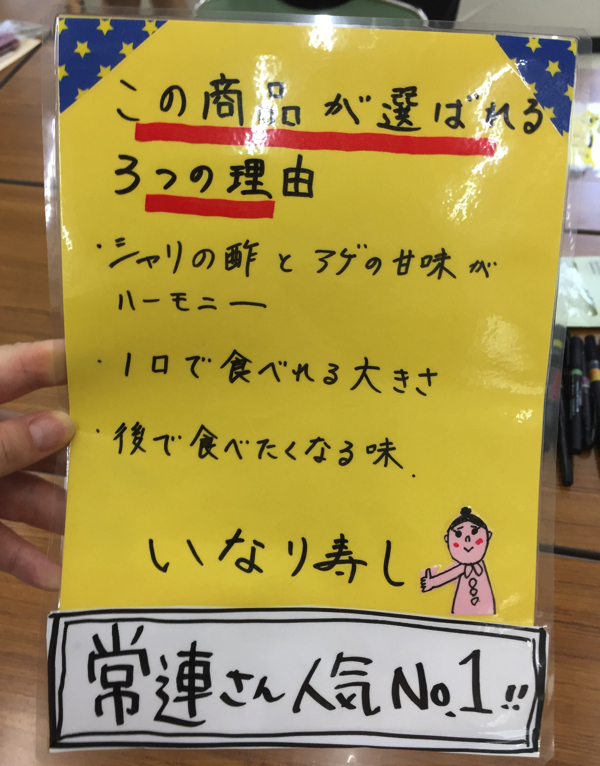 この商品が選ばれる
3つの理由
・シャリの酢とアゲの甘味が
ハーモニー
・1口で食べれる大きさ
・後で食べたくなる味.
いなり寿し
常連さん人気No.1!!